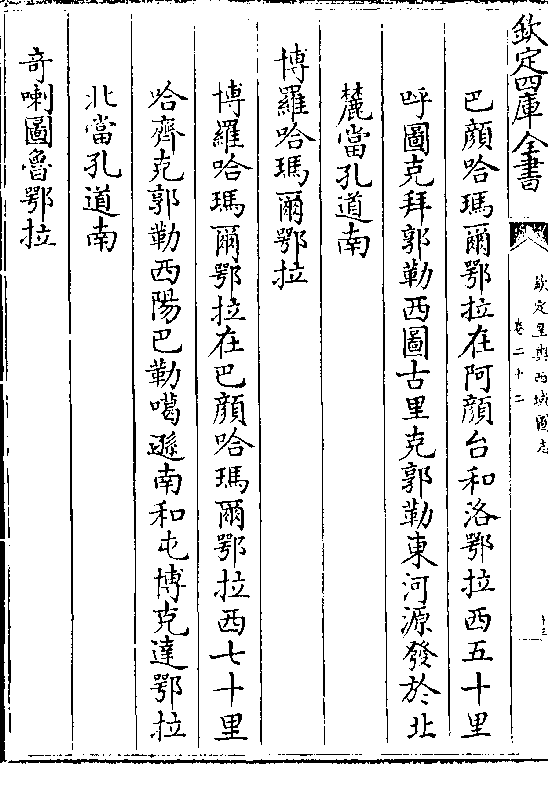 欽定四庫全書
欽定皇輿西域圖志
卷二十二
十三
巴顔哈瑪爾鄂拉在阿顔台和洛鄂拉西五十里
呼圖克拜郭勒西圖古里克郭勒東河源發於北
麓當孔道南
博羅哈瑪爾鄂拉
博羅哈瑪爾鄂拉在巴顔哈瑪爾鄂拉西七十里
哈齊克郭勒西陽巴勒噶遜南和屯博克達鄂拉
北當孔道南
奇喇圖魯鄂拉